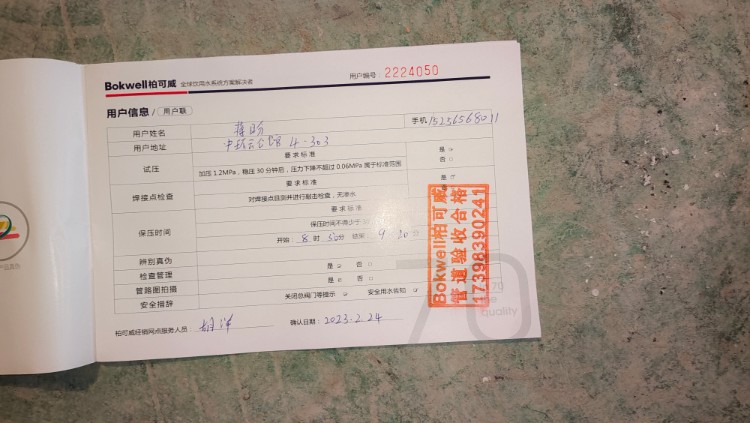 Bokwell柏可威 全球饮用水系统方案解决者
用户编号: 2224050
用户信息/ 用户联
用户姓名 蒋
手机 15256568011
用户地址 4-303
试压 要求标准 是
加压1.2MPa,稳压30分钟后,压力下降不超过0.06MPa属于标准范围 否 □
焊接点检查 要求标准 是
对焊接点目测并进行敲击检查,无渗水
保压时间 要求标准
保压时间不得少于
开始: 8 时 50分 结束 9 20
辨别真伪
检查管理 是 否 □
管路图拍摄 是 否 □
安全措辞 关闭总阀门等提示 安全用水告知
柏可威经销网点服务人员: 胡洋 确认日期: 2023.2.24
Bokwell柏可威
管道验收合格
17398390241
70
quality